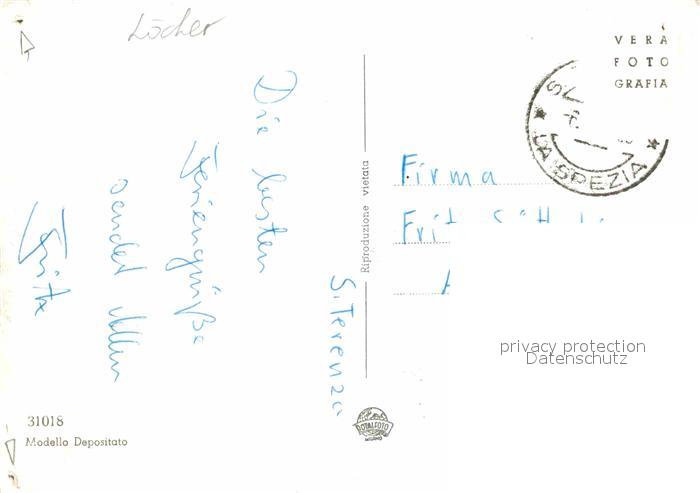 Löcher
VERA
FOTO
GRAFIA
LA SPEZIA
S. Terenzo
Die besten
Feriengrüße
sendet Allen
Fritz
Riproduzione vietata
Firma
privacy protection
Datenschutz
31018
Modello Depositato
ROTALFOTO
MILANO